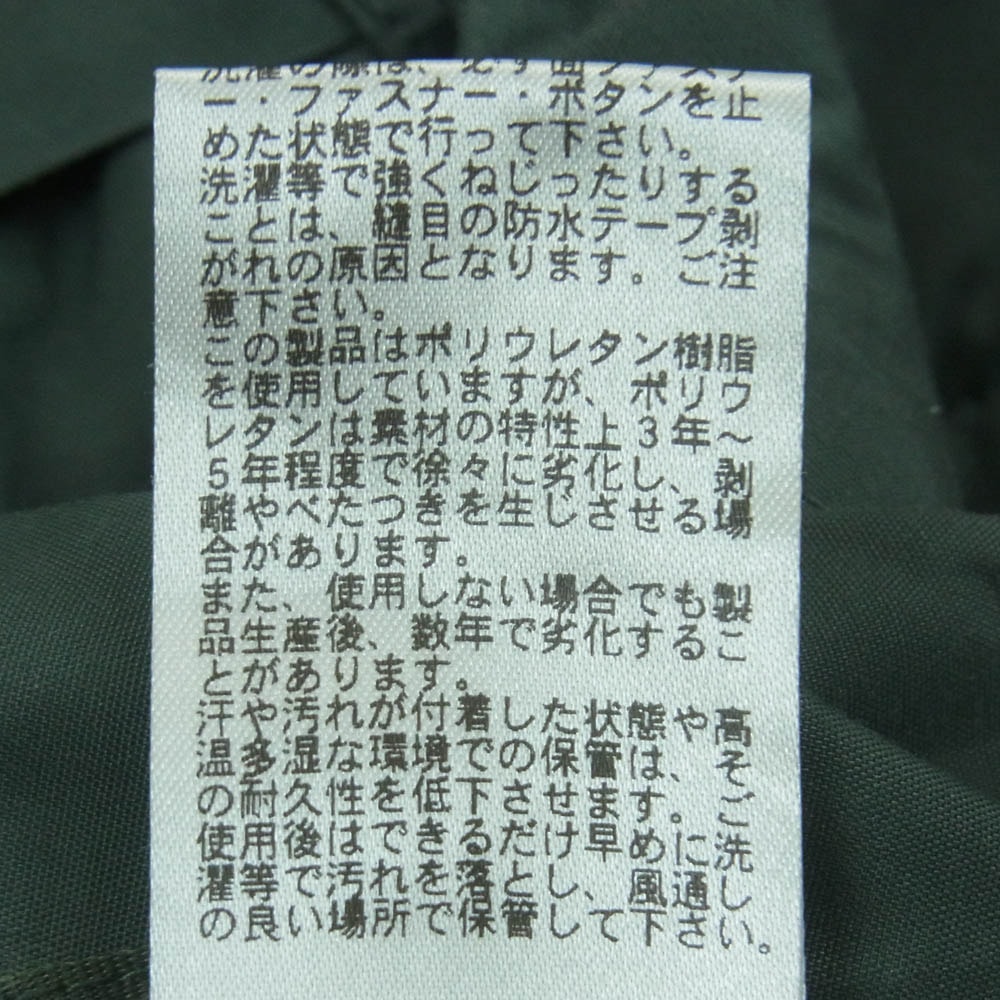 洗濯の際は、必ず面ファスナ
ー・ファスナー・ボタンを止
めた状態で行って下さい。
洗濯等で強くねじったりする
ことは、縫目の防水テープ剥
がれの原因となります。ご注
意下さい。
この製品はポリウレタン樹脂
を使用していますが、ポリウ
レタンは素材の特性上3年～
5年程度で徐々に劣化し、剥
離やべたつきを生じさせる場
合があります。
また、使用しない場合でも製
品生産後、数年で劣化するこ
とがあります。
汗や汚れが付着した状態や高
温多湿な環境での保管は、そ
の耐久性を低下させます。ご
使用後はできるだけ早めに洗
濯等で汚れを落とし、風通し
の良い場所で保管して下さい。